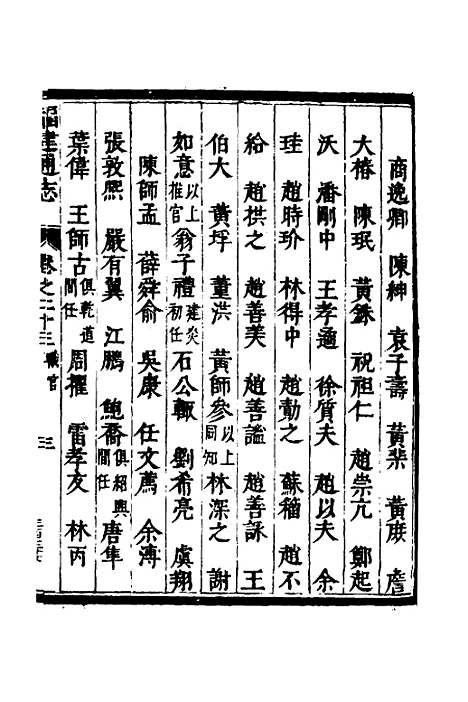 商逸卿　陳紳　袁子壽　黃棐　黃庚　詹
大椿　陳珉　黃銖　祝祖仁　趙崇亢　鄭起
沃　潘剛中　王孝適　徐質夫　趙以夫　余
給　趙拱之　趙善美　趙善謐　趙善訸　王
珪　趙時玠　林得中　趙勯之　蘇稽　趙不
伯大　黃坪　董洪　黃師參以上同知　林深之　謝
如意以上推官　翁子禮建炎初任　石公轍　劉希亮　虞翔
陳師孟　薛舜俞　吳康　任文薦　余溥
張敦熙　嚴有翼　江鵬　鮑喬俱紹興間任　唐隼
葉偉　王師古俱乾道間任　周擢　雷孝友　林丙
福建通志　卷之二十三　職官　三